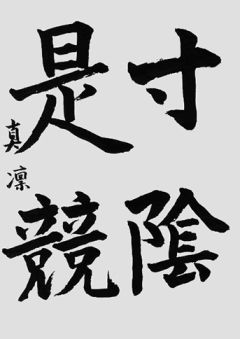 寸陰
是競
真凜